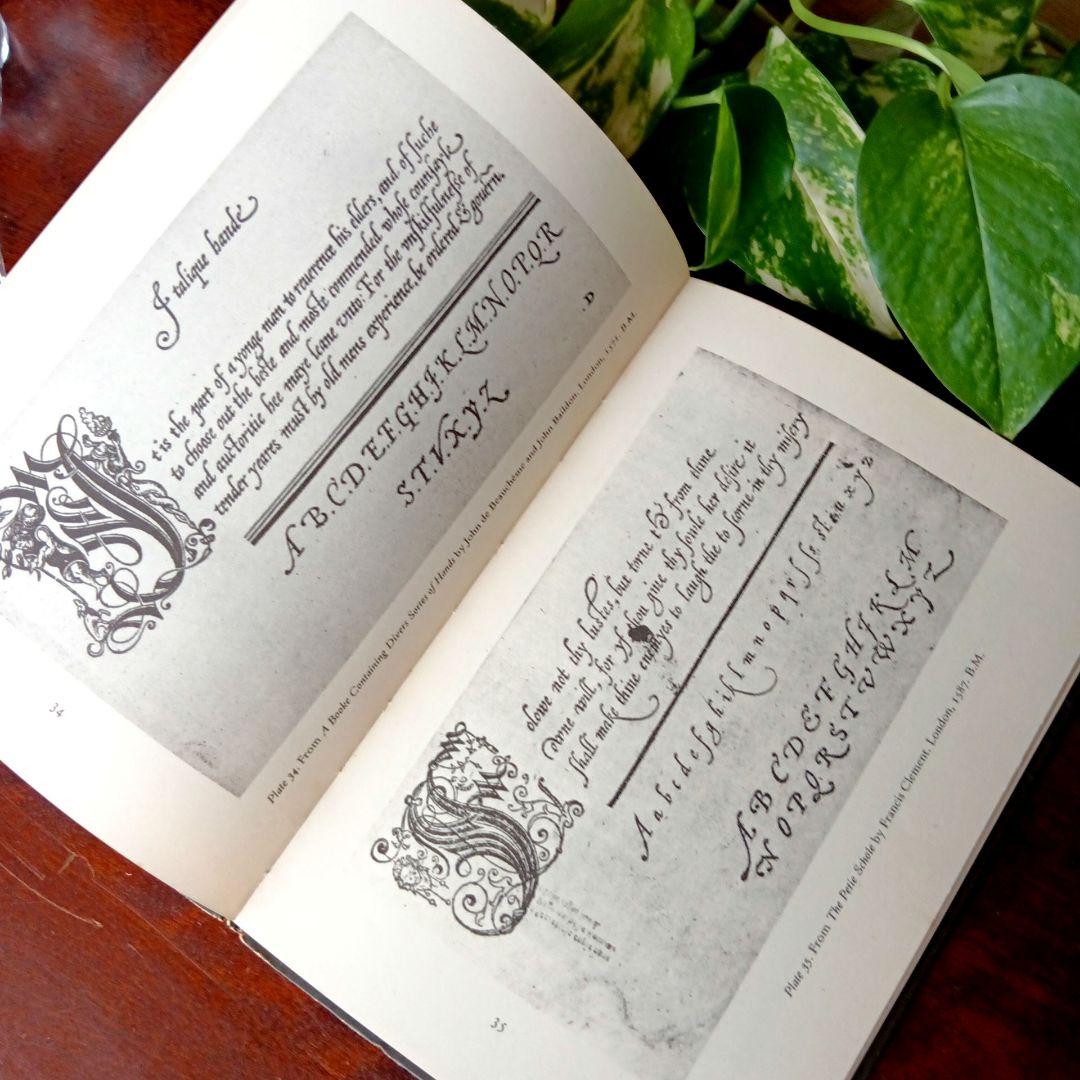 Italique hande
It is the part of a yonge man to reuerence his elders, and of suche
to choose out the beste and moste commended whose counsayle
and auctoritie hee maye leane vnto: For the vnskilfulnesse of
tender yeares must by old mens experience, be ordered & gouern.
A.B.C.D.E.F.G.H.J.K.L.M.N.O.P.Q.R
S.T.V.X.Y.Z
D
Plate 34. From A Booke Containing Divers Sortes of Hands by John de Beauchesne and John Baildon. London, 1571. B.M.
34
Folowe not thy lustes, but torne the from thine
owne will, for yf thou giue thy sowle her desire, it
shall make thine enemyes to laugh the to scorne in thy misery
A a b c d e f g h i k l m n o p q r s
A B C D E F G H J K L M
N O P Q R S T V W X Y Z
Plate 35. From The Petie Schole by Francis Clement. London, 1587. B.M.
35